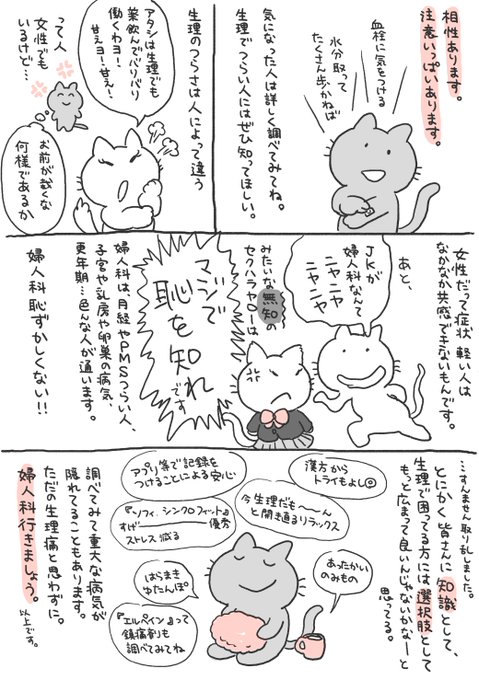 相性あります。
注意いっぱいあります。
血栓に気をつける
水分取って
たくさん歩かねば
気になった人は詳しく調べてみてね。
生理でつらい人にはぜひ知ってほしい。
生理のつらさは人によって違う
アタシは生理でも
薬飲んでバリバリ
働くわヨ!
甘えヨ!甘え!
って人
女性でも
いるけど…
お前が裁くな
何様であるか
女性だって症状軽い人は
なかなか共感できないもんです。
あと、
JKが
婦人科なんて
ニヤニヤ
ニヤニヤ
みたいな無知の
セクハラヤローは
マジで
恥を知れ
です
婦人科は、月経やPMSつらい人、
子宮や乳房や卵巣の病気、
更年期…色んな人が通います。
婦人科恥ずかしくない!!
…すんません取り乱しました。
とにかく皆さんに知識として、
生理で困ってる方には選択肢として
もっと広まって良いんじゃないかなーと
思ってる。
漢方から
トライもよし
アプリ等で記録を
つけることによる安心
今生理だも〜〜ん
と開き直るリラックス
『ソフィ シンクロフィット』
すげ――――優秀
ストレス減る
あったかい
のみもの
はらまき
ゆたんぽ
『エルペイン』って
鎮痛剤も
調べてみてね
調べてみて重大な病気が
隠れてることもあります。
ただの生理痛と思わずに。
婦人科行きましょう。
以上です。